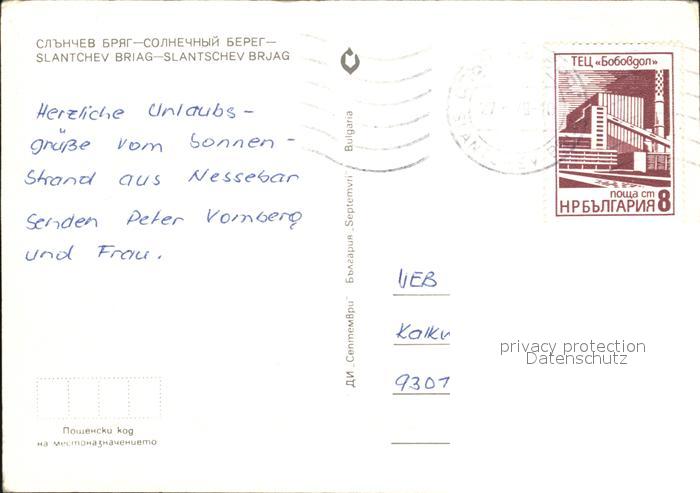 СЛЪНЧЕВ БРЯГ—СОЛНЕЧНЫЙ БЕРЕГ—
SLANTCHEV BRIAG—SLANTSCHEV BRJAG
Herzliche Urlaubs-
grüße vom Sonnen-
strand aus Nessebar
senden Peter Vomberg
und Frau.
Пощенски код
на местоназначението
ДИ „Септември" България „Septemvri" Bulgaria
ТЕЦ «Бобовдол»
поща ст
НРБЪЛГАРИЯ 8
VEB
9301
privacy protection
Datenschutz